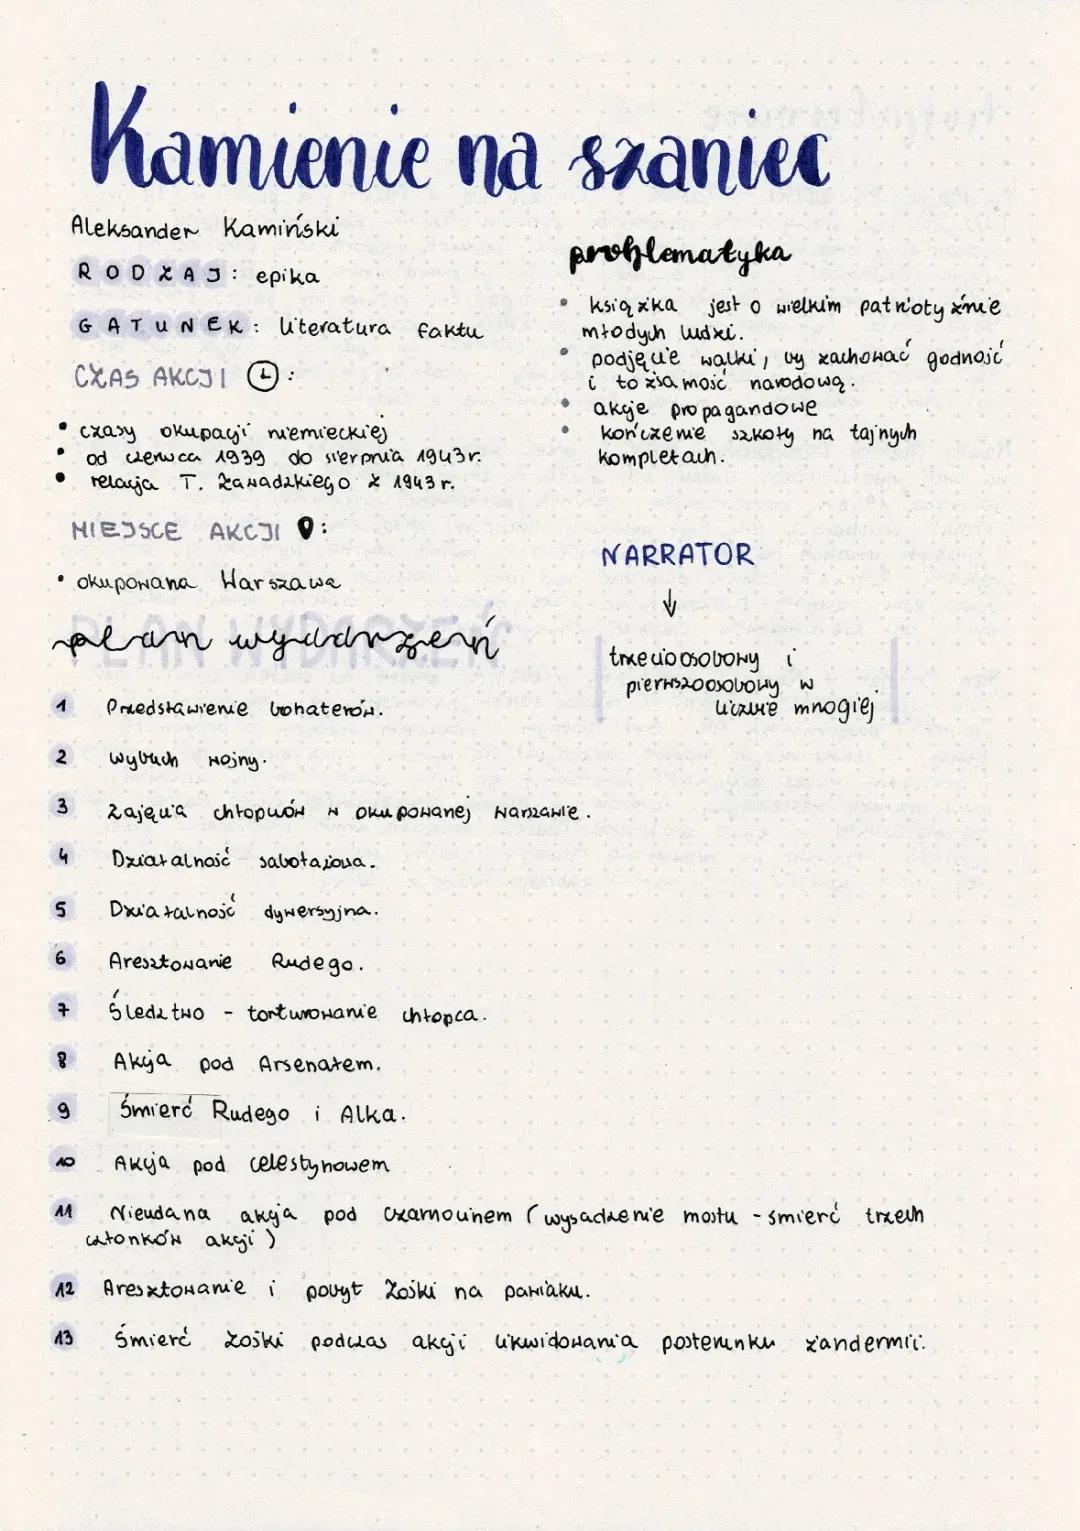 Kamienie na szaniec
Aleksander Kamiński
RODZAJ: epika
GATUNEK: literatura faktu
CZAS AKCJI :
• czasy okupacji niemieckiej
• od czerwca 1939 do sierpnia 1943r.
• relacja T. Zawadzkiego z 1943 r.
MIEJSCE AKCJI :
• okupowana Warszawa
problematyka
• książka jest o wielkim patriotyźmie
młodych ludzi.
• podjęcie walki, by zachować godność
i tożsamość narodową.
• akcje propagandowe
• kończenie szkoły na tajnych
kompletach.
NARRATOR
↓
trzecioosobowy i
pierwszoosobowy w
liczbie mnogiej
PLAN WYDARZEŃ
plan wydarzeń
1 Przedstawienie bohaterów.
2 Wybuch wojny.
3 Zajęcia chłopców w okupowanej Warszawie.
4 Działalność sabotażowa.
5 Działalność dywersyjna.
6 Aresztowanie Rudego.
7 Śledztwo - torturowanie chłopca.
8 Akcja pod Arsenałem.
9 Śmierć Rudego i Alka.
10 Akcja pod Celestynowem
11 Nieudana akcja pod Czarnocinem (wysadzenie mostu - śmierć trzech
członków akcji)
12 Aresztowanie i pobyt Zośki na pawiaku.
13 Śmierć Zośki podczas akcji likwidowania posterunku żandermii.